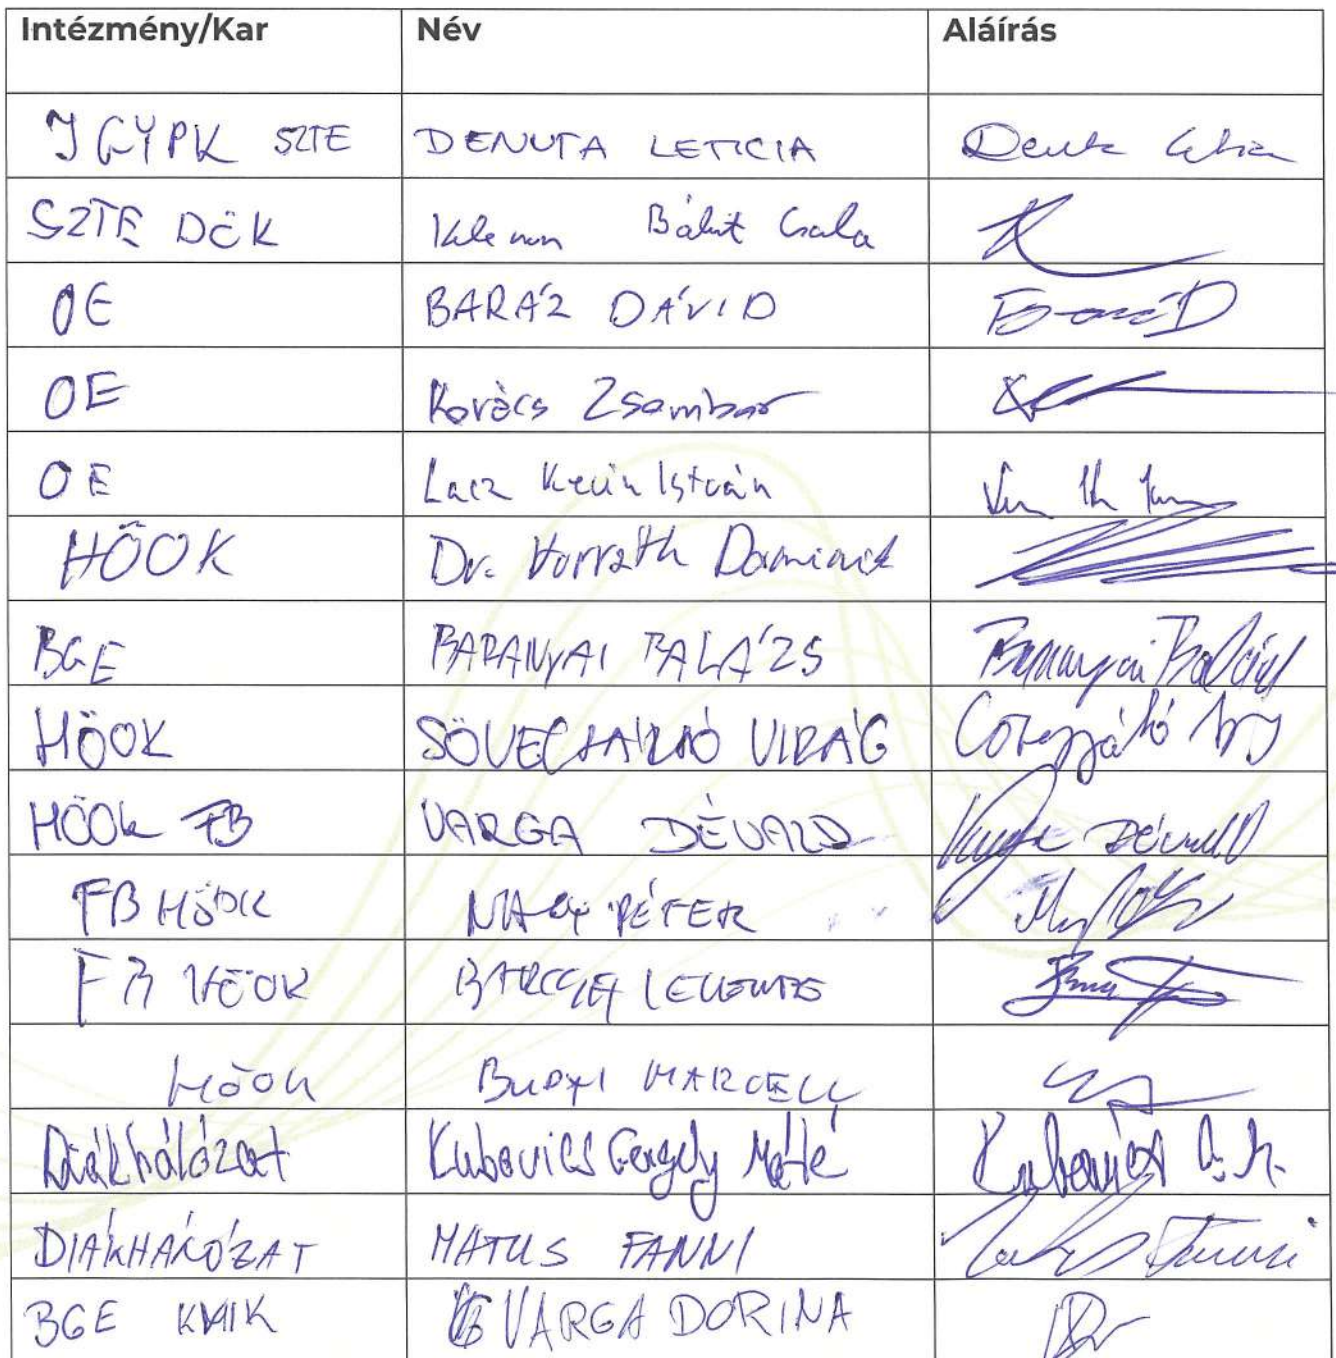 Intézmény/Kar Név Aláírás
JGYPK SZTE DENUTA LETICIA
SZTE DÖK Bálint Csala
OE BARÁZ DÁVID
OE Kovács Zsombor
OE Lacz Kevin István
HÖOK Dr. Horváth Dominik
BGE BARANYAI BALÁZS Baranyai Balázs
HÖOK VIRÁG
HÖOK FB VARGA DÉVALD Varga Dévald
FB HÖOK NAGY PÉTER
FB HÖOK LEVENTE
HÖOK MARCELL
Diákhálózat Kubovics Gergely Máté Kubovics G. M.
DIÁKHÁLÓZAT MATUS FANNI Matus Fanni
BGE KVIK VARGA DORINA